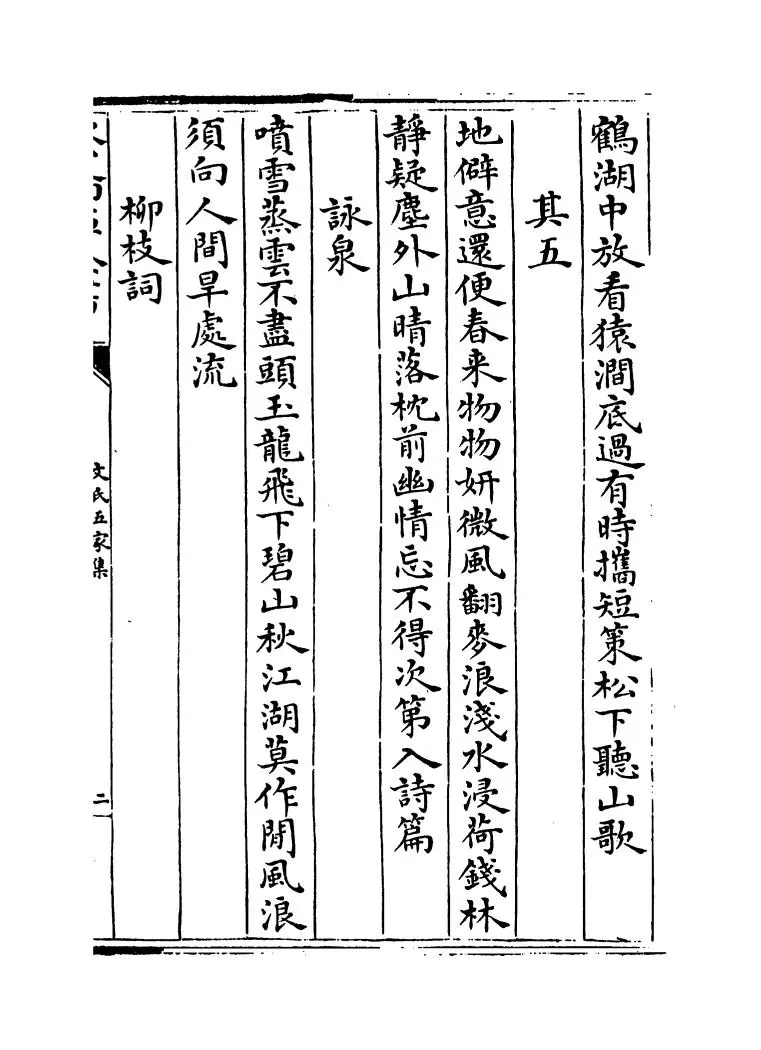 鶴湖中放看猿澗底過有時攜短策松下聽山歌
其五
地僻意還便春来物物妍微風翻麥浪淺水浸荷錢林
靜疑塵外山晴落枕前幽情忘不得次第入詩篇
詠泉
噴雪蒸雲不盡頭玉龍飛下碧山秋江湖莫作閒風浪
須向人間旱處流
柳枝詞
文氏五家集
二